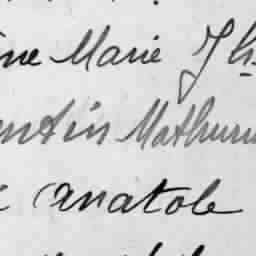 ine Marie Jh
entin Mathurin
anatole